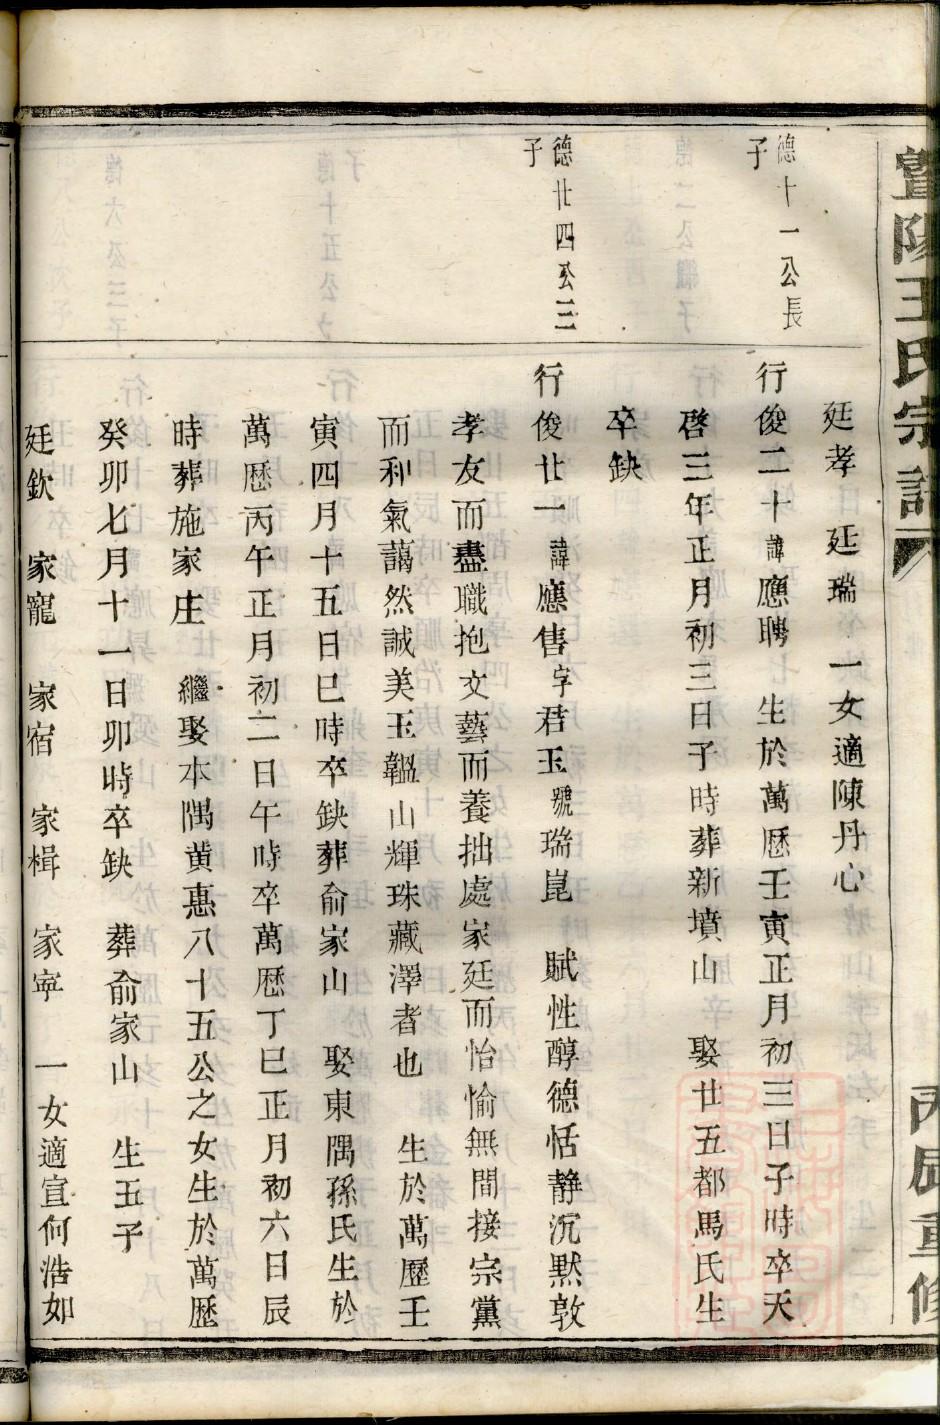 暨陽王氏宗譜
丙辰重修
廷孝 廷瑞 一女適陳丹心
德十一公長
子
行俊二十諱應聘 生於萬歷壬寅正月初三日子時卒天
啓三年正月初三日子時葬新墳山 娶廿五都馬氏生
卒缺
德廿四公三
子
行俊廿一諱應售字君玉號瑞崑 賦性醇德恬静沉默敦
孝友而盡職抱文藝而養拙處家廷而怡愉無間接宗黨
而和氣藹然誠美玉韞山輝珠藏澤者也 生於萬歷壬
寅四月十五日巳時卒缺葬俞家山 娶東隅孫氏生於
萬歷丙午正月初二日午時卒萬歷丁巳正月初六日辰
時葬施家庄 繼娶本隅黄惠八十五公之女生於萬歷
癸卯七月十一日卯時卒缺 葬俞家山 生五子
廷欽 家寵 家宿 家楫 家寧 一女適宣何浩如